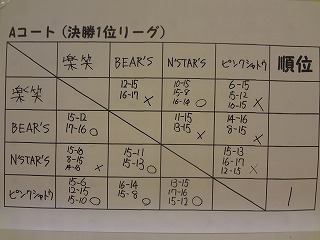 Aコート（決勝1位リーグ）
楽笑 BEAR'S N'STAR'S ピンクシャトウ 順位
楽笑
12-15
16-17 ×
10-15
15-8
16-14 ○
6-15
15-12
10-15 ×
BEAR'S
15-12
17-16 ○
11-15
13-15 ×
14-16
8-15 ×
N'STAR'S
15-10
8-15
14-16 ×
15-11
15-13 ○
15-13
16-17
12-15 ×
ピンクシャトウ
15-6
12-15
15-10 ○
16-14
15-8 ○
13-15
17-16
15-12 ○
1